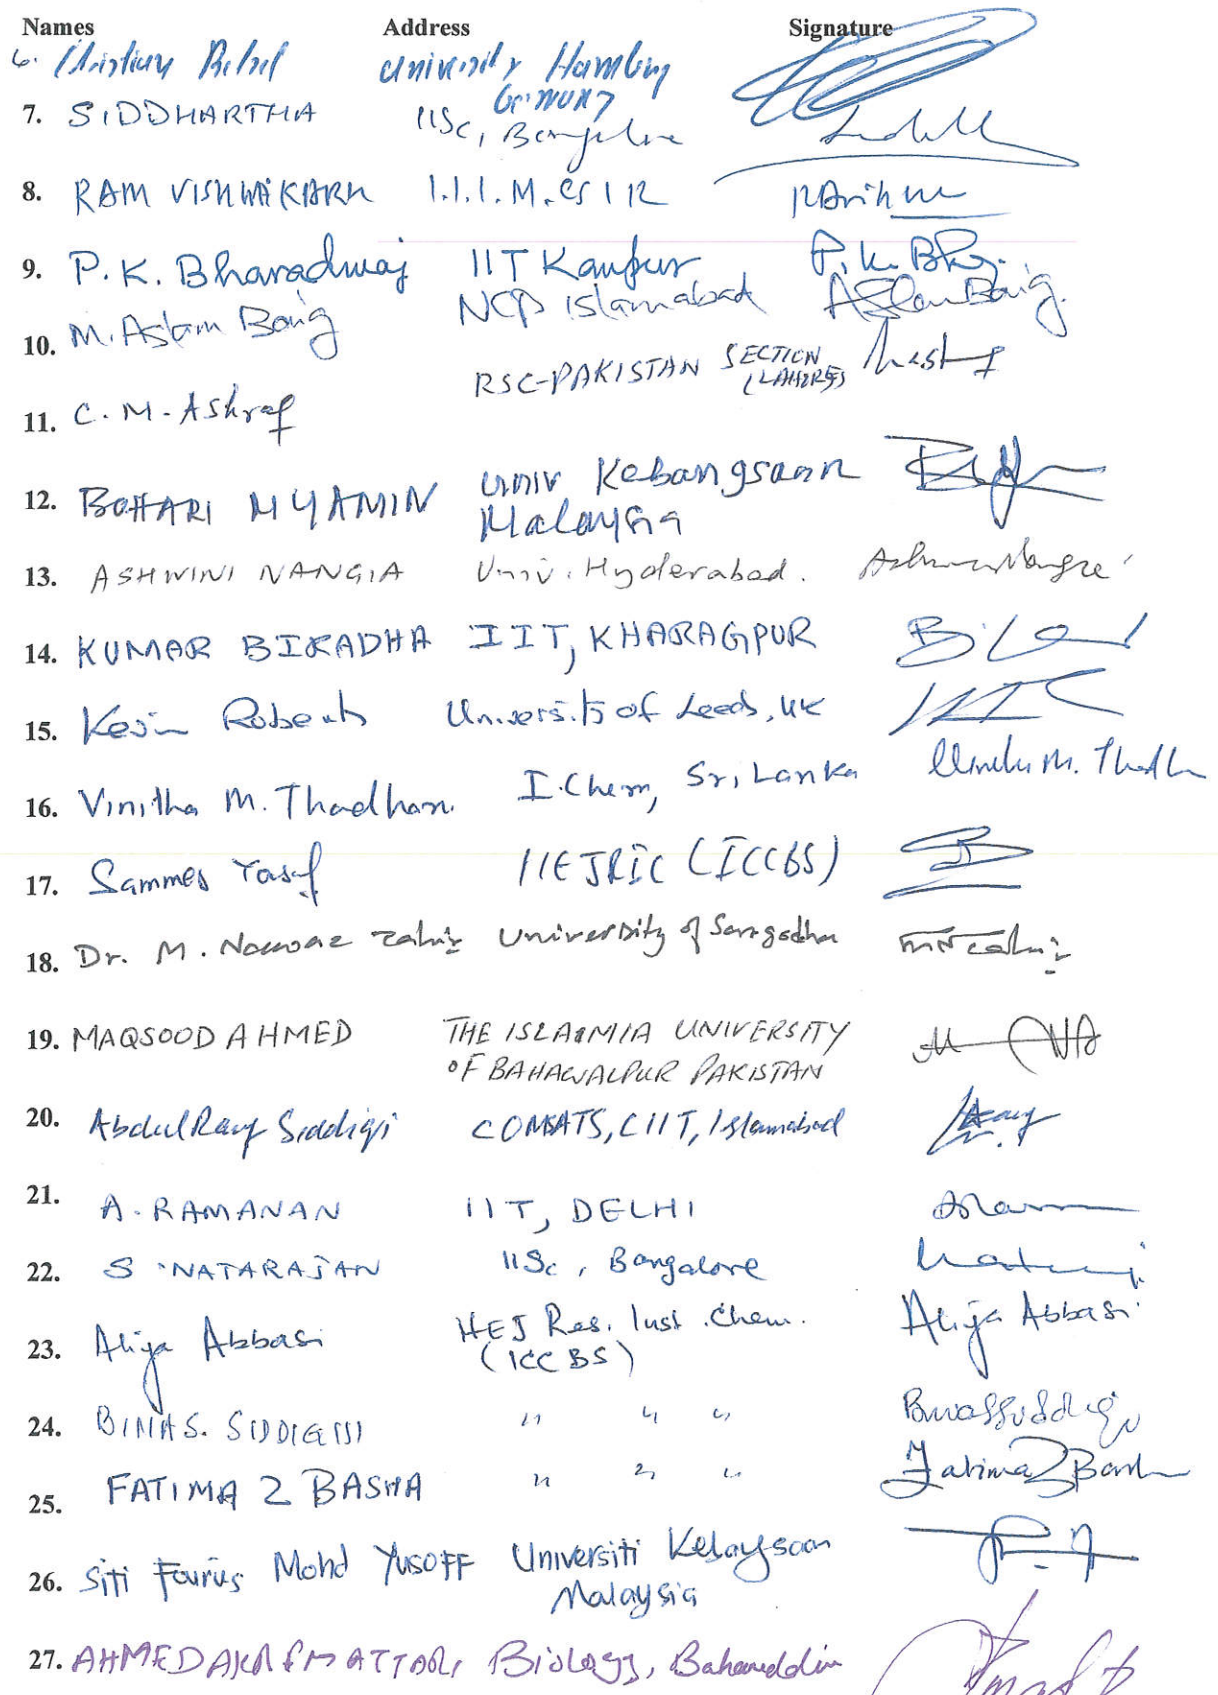 Names Address Signature
6. University Hamburg
Germany
7. SIDDHARTHA IISc, Bangalore
8. RAM VISHWAKARM I.I.I.M. CSIR
9. P.K. Bharadwaj IIT Kanpur P.K. Bhj.
10. M. Aslam Baig NCP Islamabad Aslam Baig.
RSC-PAKISTAN SECTION
(LAHORE)
11. C. M. Ashraf
12. BOHARI M YAMIN Univ Kebangsaan
Malaysia
13. ASHWINI NANGIA Univ. Hyderabad. Ashwini Nangia
14. KUMAR BIRADHA IIT, KHARAGPUR
15. Kevin Roberts University of Leeds, UK
16. Vinitha M. Thadhani I.Chem, Sri Lanka Vinitha M. Thadh
17. Sammer Yousuf HEJRIC (ICCBS)
18. Dr. M. Nawaz Tahir University of Sargodha
19. MAQSOOD AHMED THE ISLAMIA UNIVERSITY
OF BAHAWALPUR PAKISTAN
20. Abdul Rauf Siddiqi COMSATS, CIIT, Islamabad
21. A. RAMANAN IIT, DELHI
22. S. NATARAJAN IISc, Bangalore
23. Atiya Abbasi HEJ Res. Inst. Chem. Atiya Abbasi
(ICCBS)
24. BINA S. SIDDIQUI " " "
25. FATIMA Z BASHA " " " Fatima Z Basha
26. Siti Fairus Mohd Yusoff Universiti Kebangsaan
Malaysia
27. AHMED Biology, Bahauddin